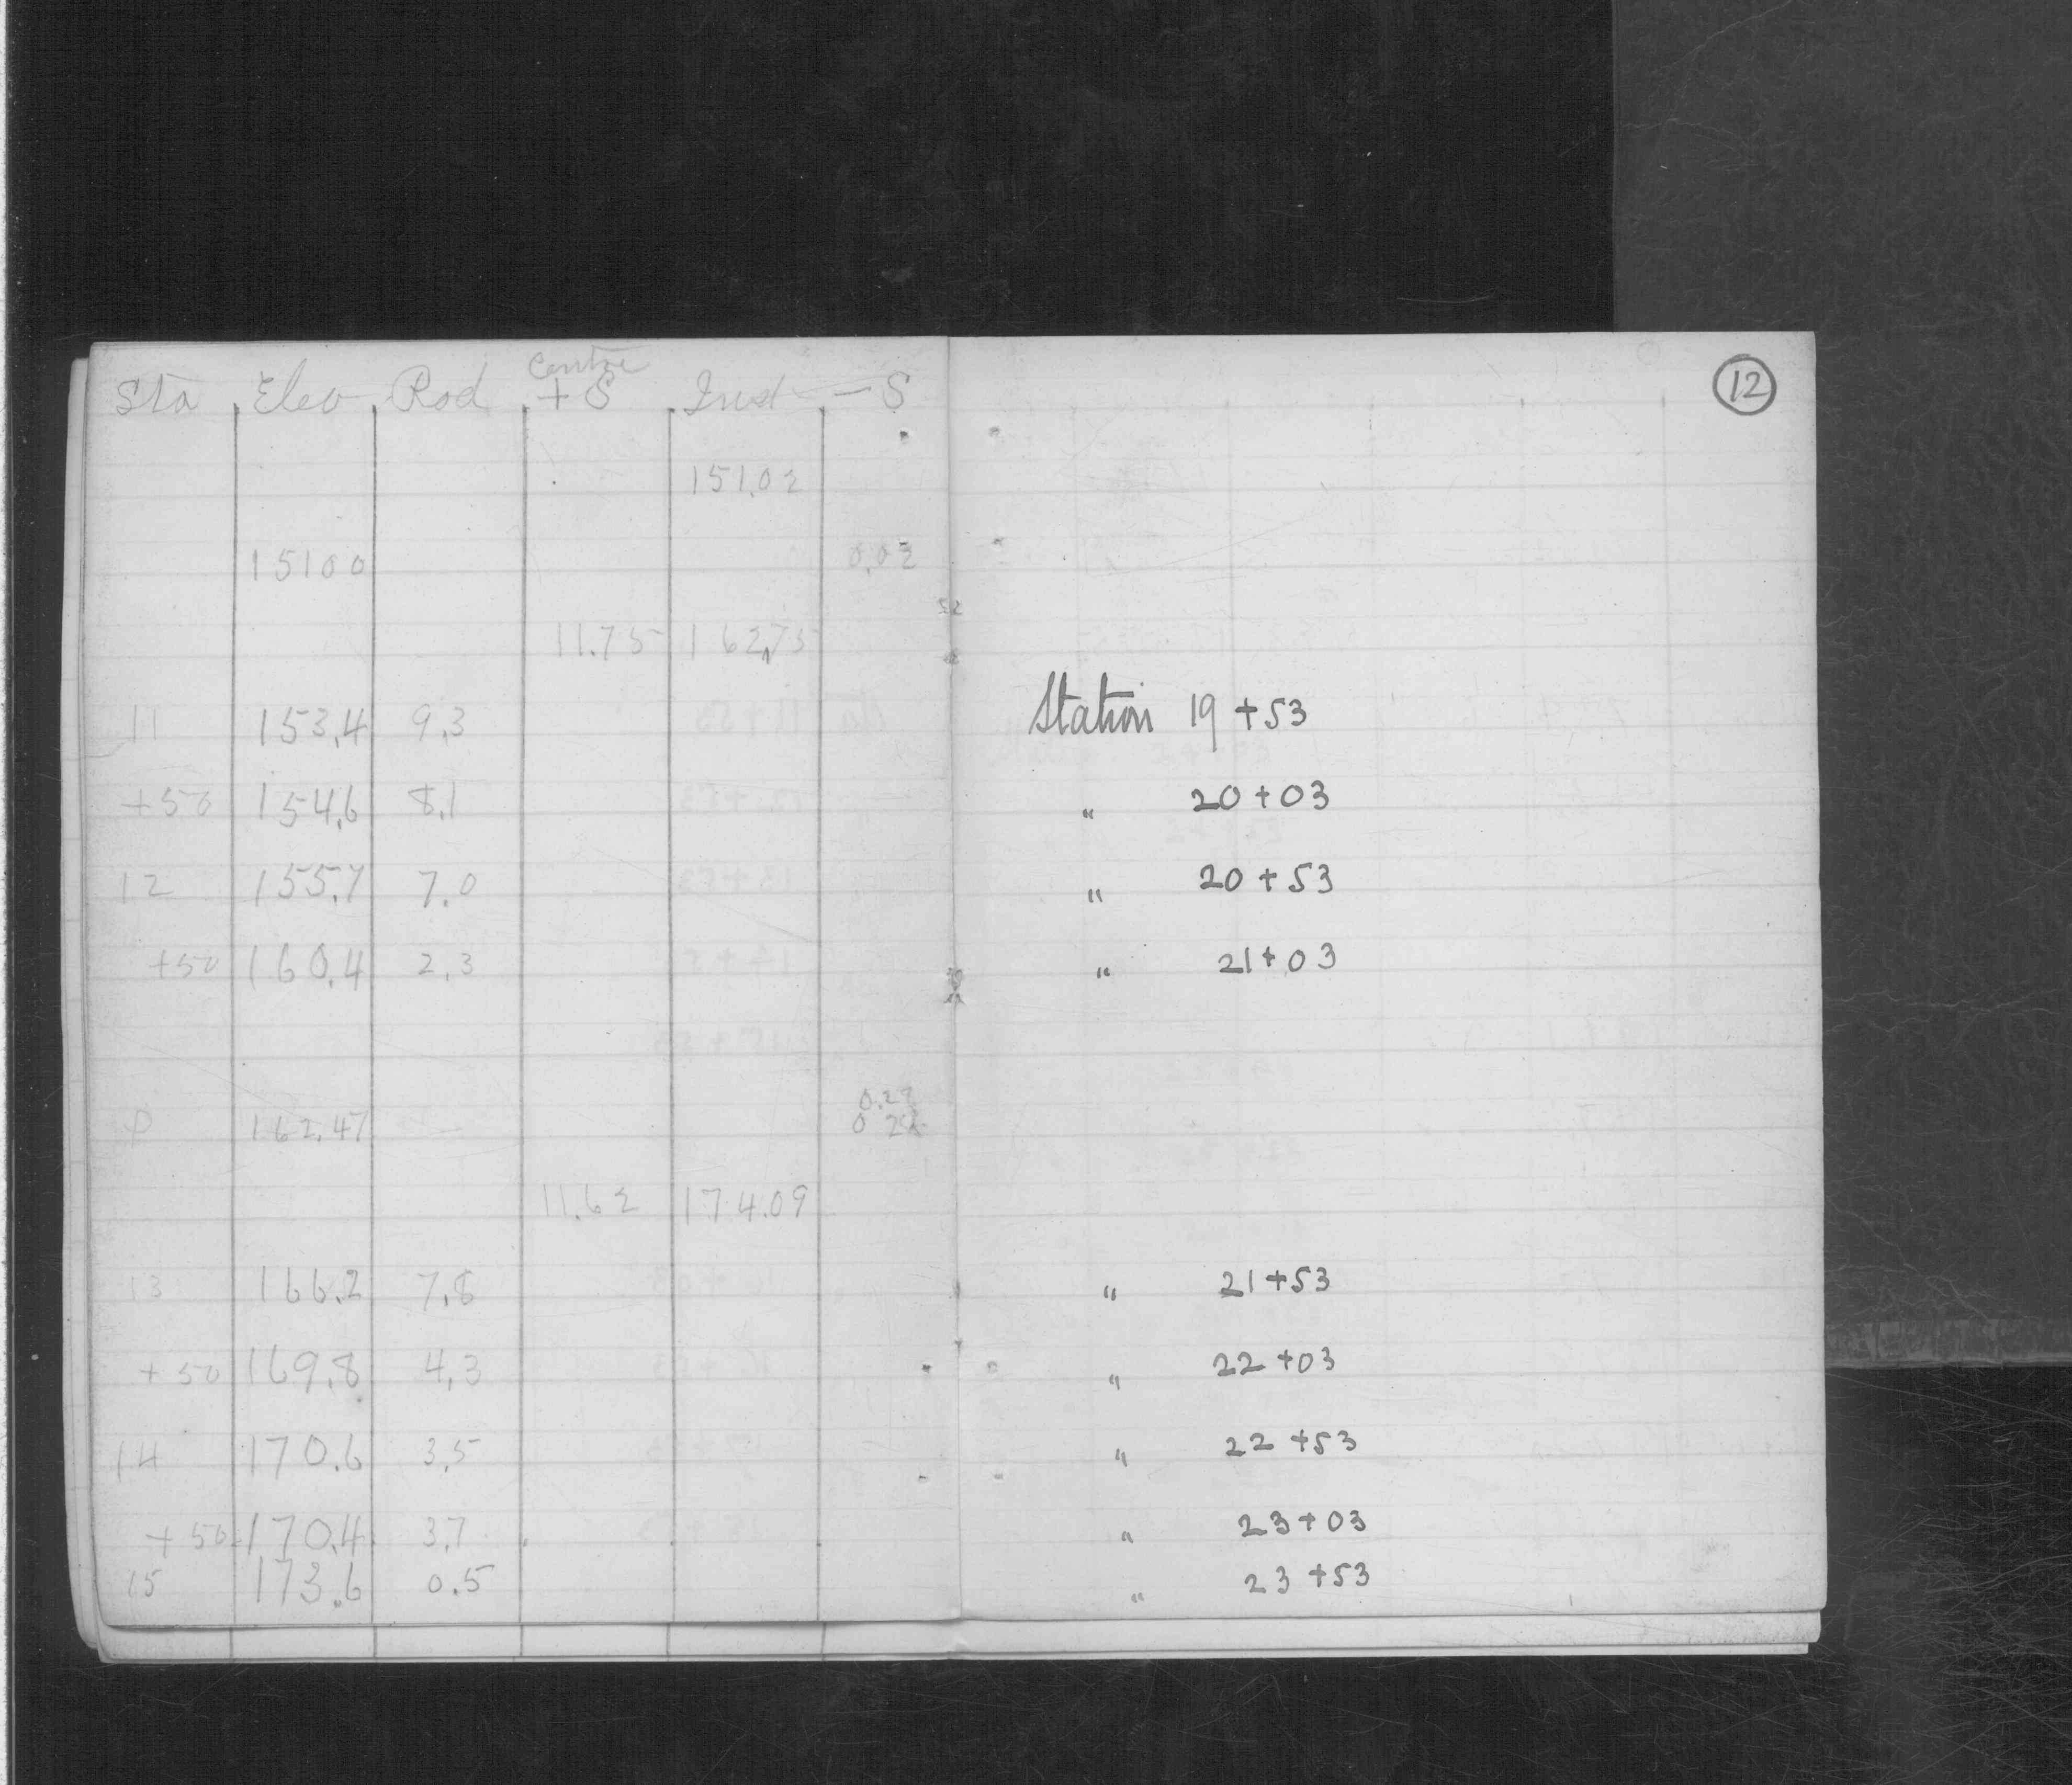 12
Centre
Sta Elev Rod + S Inst - S
151.02
151 00 0.02
11.75 162.75
11 153.4 9.3 Station 19 + 53
+50 154.6 8.1 " 20 + 03
12 155.7 7.0 " 20 + 53
+50 160.4 2.3 " 21 + 03
0.28
P 162.47
11.62 174.09
13 166.2 7.8 " 21 + 53
+ 50 169.8 4.3 " 22 + 03
14 170.6 3.5 " 22 + 53
+ 50 170.4 3.7 " 23 + 03
15 173.6 0.5 " 23 + 53